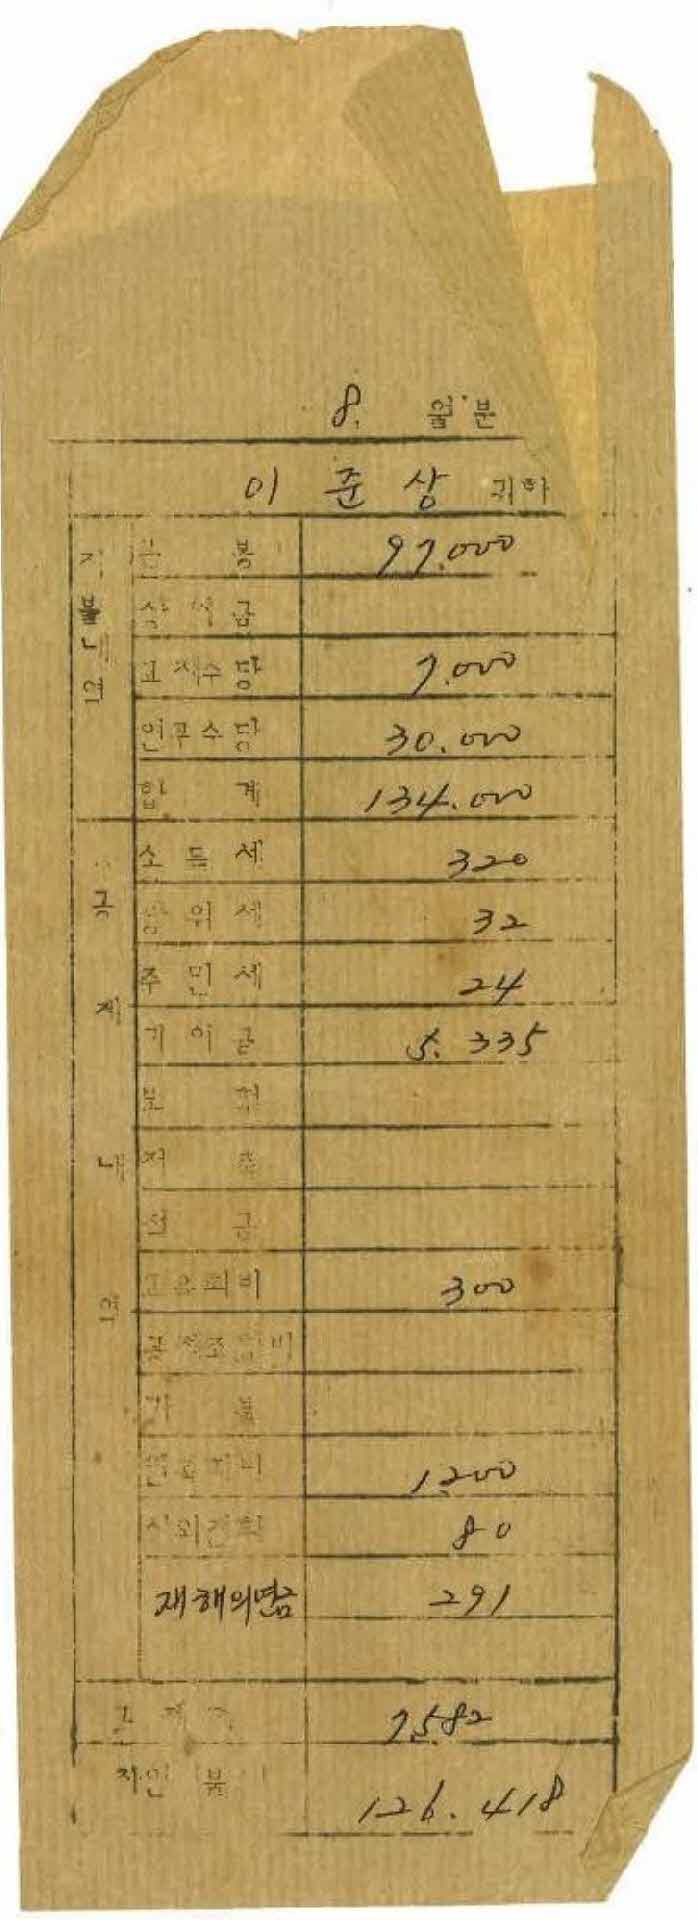 8. 월분
이 준 상 귀하
지불내역
본 봉 97.000
상여금
교재수당 7.000
연구수당 30.000
합 계 134.000
공제내역
소득세 320
방위세 32
주민세 24
기여금 5.335
보험
저축
선금
교육회비 300
공제조합비
가불
1.200
80
재해의연금 291
공제계 7582
차인 불 126.418